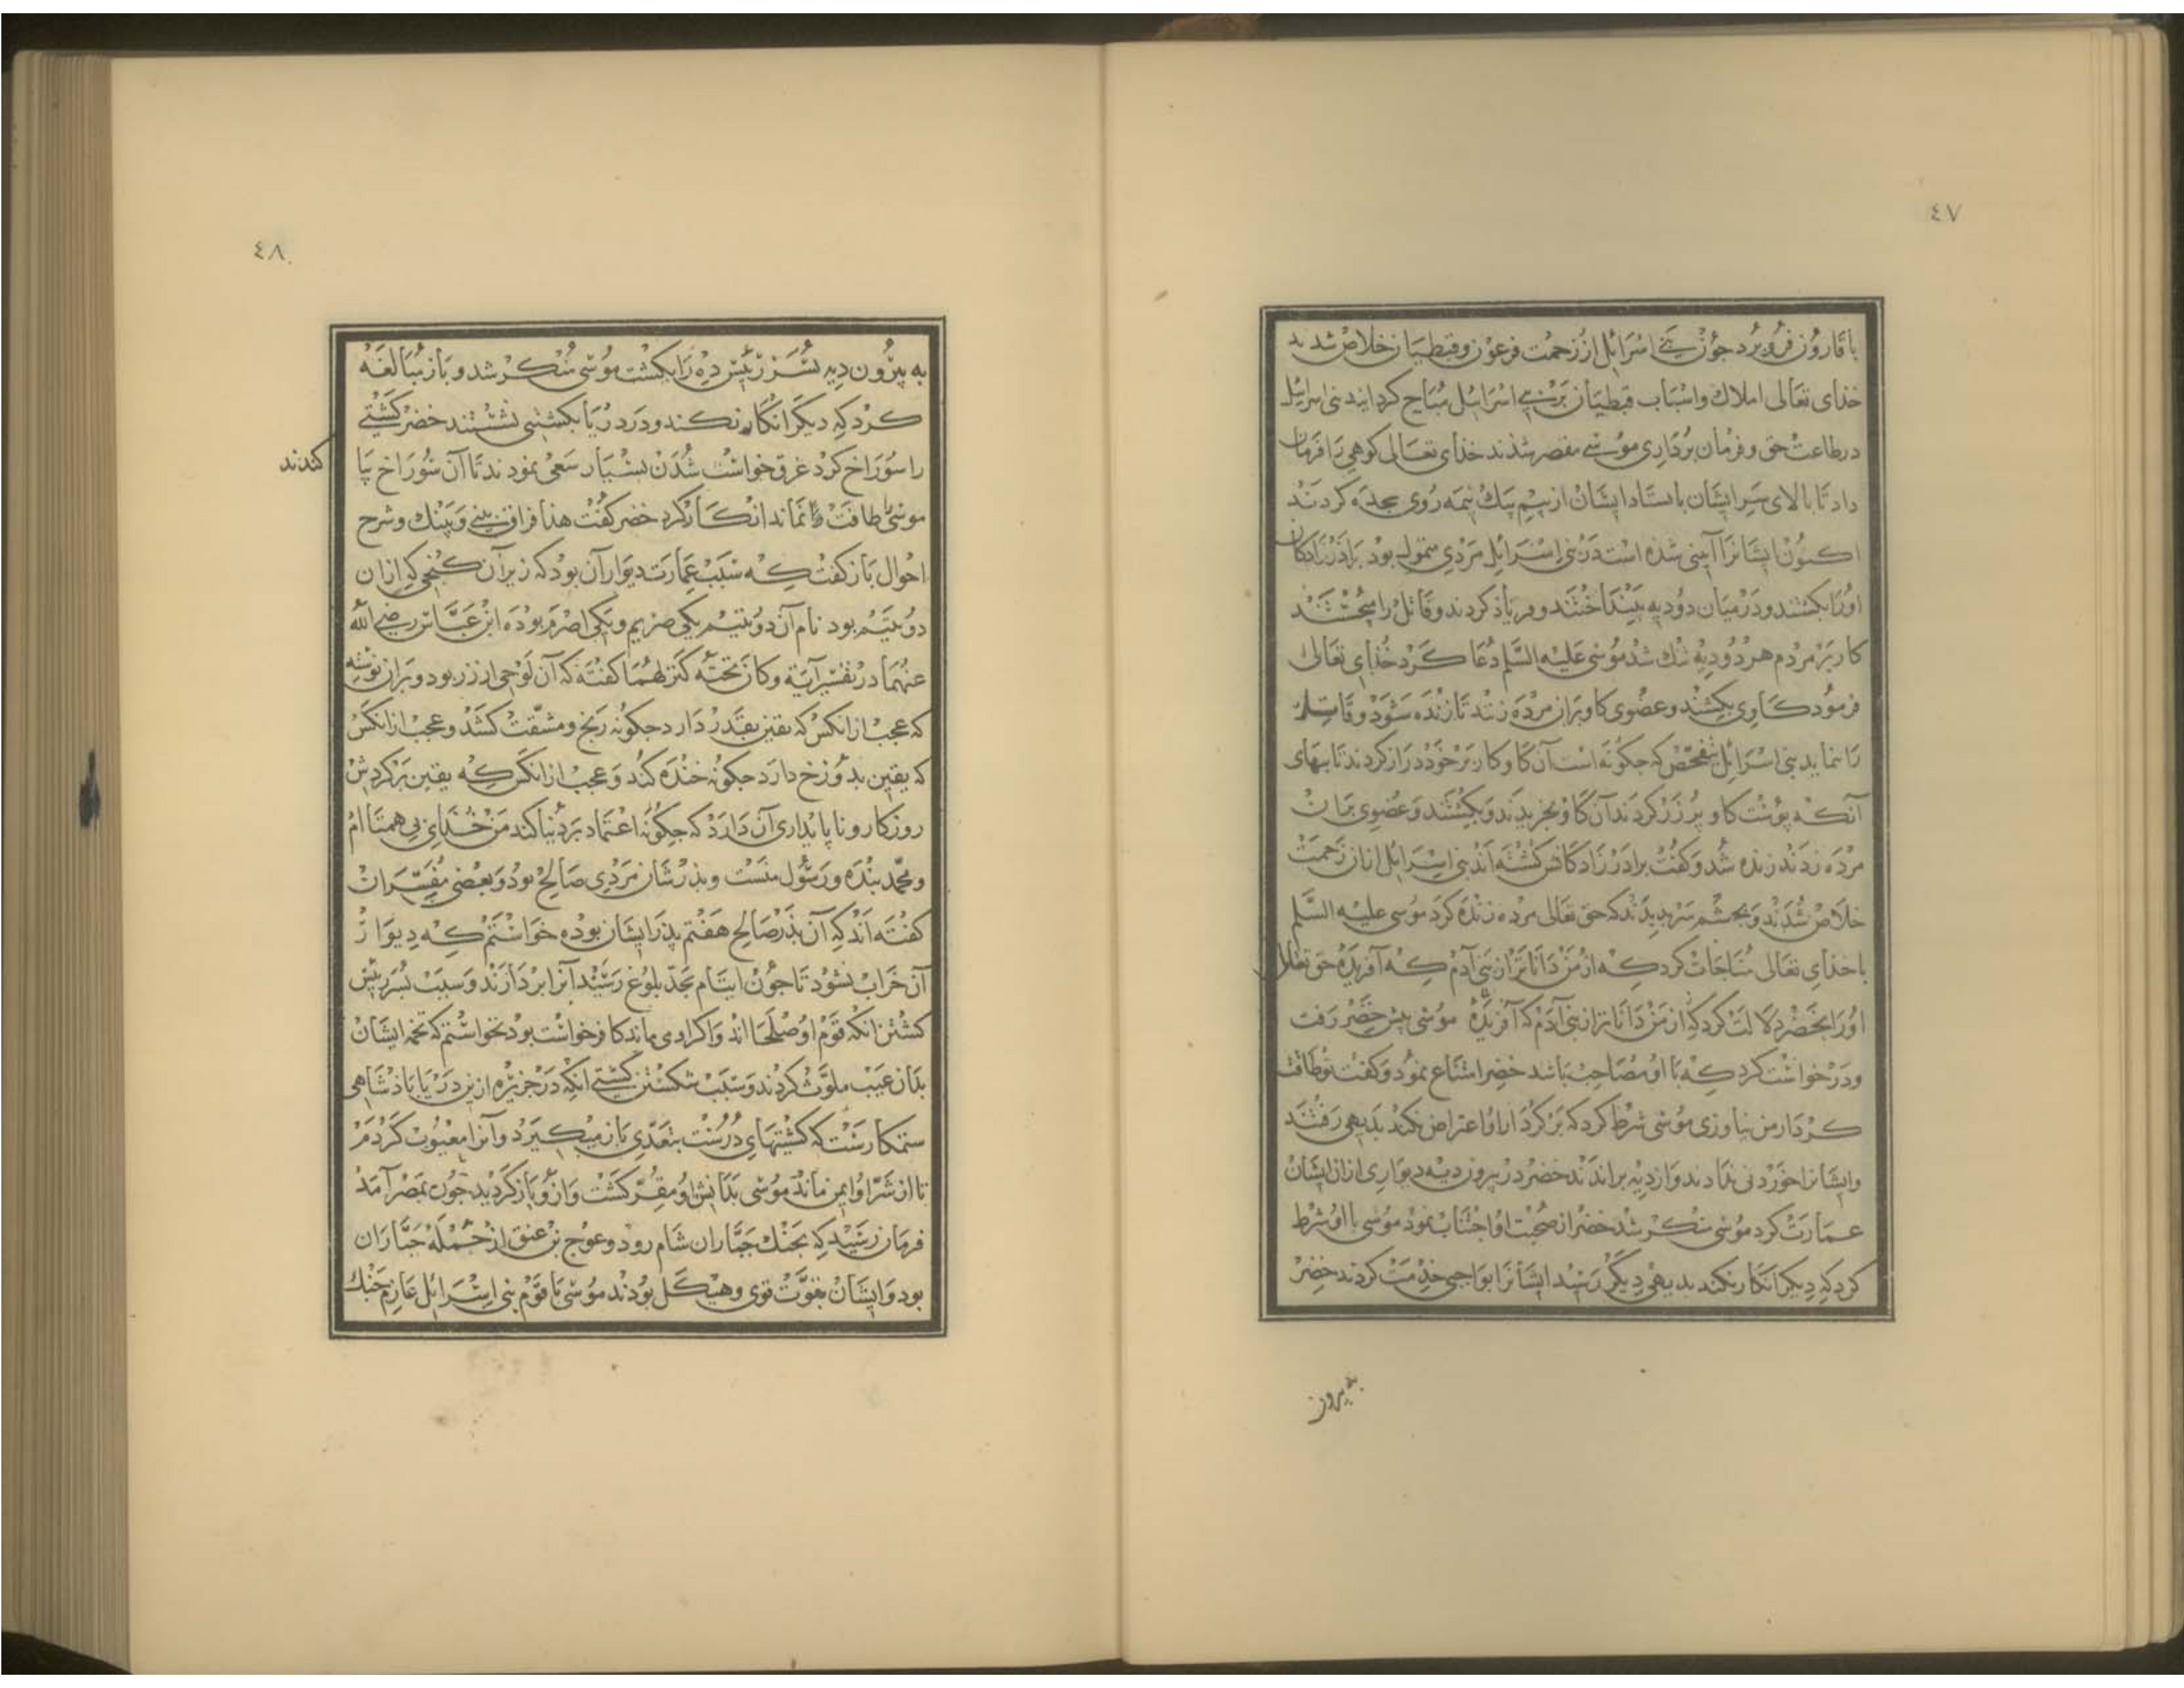 ٤٧
با قارون فرو برد جون بنی اسرائیل از زحمت فرعون و قبطیان خلاص شدند
خذای تعالی املاك و اسباب قبطیان بر بنی اسرائیل مباح کردانید بنی اسرائیل
در طاعت حق و فرمان برداری موسی مقصر شذند خذای تعالی کوهی را فرمان
داد تا بالای سر ایشان باستاد ایشان از بیم بیك نیمه روی سجده کردند
اکنون ایشانرا آیینی شده است در بنی اسرائیل مردی متمول بود برادرزادکان
اورا بکشتند و در میان دو دیه بینداختند و فریاذ کردند و قاتل را میجستند
کار بر مردم هر دو دیه تنك شد موسی علیه السلم دعا کرد خذای تعالی
فرمود کاوی بکشند و عضوی کاو بران مرده زنند تا زنده شود و قاتل
را بنماید بنی اسرائیل تفحص که جکونه است آن کاو کار بر خود دراز کردند تا ببهای
آنکه پوست کاو پر زر کردند آن کاو بخریدند و بکشتند و عضوی بران
مرده زدند زنده شد و کفت برادرزادکانش کشته اند بنی اسرائیل ازان زحمت
خلاص شدند و بجشم سر بدیدند که حق تعالی مرده زنده کرد موسی علیه السلم
با خذای تعالی مناجات کرد که از من داناتر از بنی آدم که آفریدهٔ حق تعالی
اورا بخضر دلالت کرد که از من داناتر از بنی آدم که آفریدهٔ موسی پیش خضر رفت
و درخواست کرد که با او مصاحب باشد خضر امتناع نمود و کفت تو طاقت
کردار من نیاوری موسی شرط کرد که بر کردار او اعتراض نکند بدیهی رفتند
و ایشانرا خوردنی ندادند و از دیه براندند خضر در بیرون دیه دیواری ازان ایشان
عمارت کرد موسی منکر شد خضر از صحبت او اجتناب نمود موسی با او شرط
کرد که دیکر انکار نکند بدیهی دیکر رسید ایشانرا بواجبی خذمت کردند خضر
به بیرون
٤٨
به بیرون دیه پسر رئیس ده را بکشت موسی منکر شد و باز مبالغه
کرد که دیکر انکار نکند و در دریا بکشتی نشستند خضر کشتی
را سوراخ کرد غرق خواست شدن بسیار سعی نمودند تا آن سوراخ پا
کندند
موسی را طاقت نماند انکار کرد خضر کفت هذا فراق بینی و بینك و شرح
احوال باز کفت که سبب عمارت دیوار آن بود که زیر آن کنجی که ازان
دو یتیم بود نام آن دو یتیم یکی صریم و یکی اصرم بوده ابن عباس رضی الله
عنهما در تفسیر آیة و کان تحته کنز لهما کفته که آن لوحی از زر بود و بران نوشته
که عجب ازانکس که یقین بقدر دارد جکونه رنج و مشقت کشد و عجب ازانکس
که یقین بدوزخ دارد جکونه خنده کند و عجب ازانکس که یقین بر کردش
روزکار و ناپایداری آن دارد که جکونه اعتماد بر دنیا کند من خذای بی همتا ام
و محمد بنده و رسول منست و بذرشان مردی صالح بود و بعضی مفسران
کفته اند که آن بذر صالح هفتم بذر ایشان بوده خواستم که دیوار
آن خراب نشود تا جون ایتام بحد بلوغ رسند آنرا بردارند و سبب پسر رئیس
کشتن انکه قوم او صلحا اند و اکر او می ماند کافر خواست بود نخواستم که تخمه ایشان
بدان عیب ملوث کردند و سبب شکستن کشتی انکه در جزیره از بن دریا باذشاهی
ستمکار ست که کشتیهای درست بتعدی باز میکیرد و آنرا معیوب کردم
تا از شر او ایمن ماند موسی بدانش او مقر کشت و ازو باز کردید جون بمصر آمد
فرمان رسید که بجنك جباران شام رود و عوج بن عنق از جمله جباران
بود و ایشان بقوت قوی و هیکل بودند موسی با قوم بنی اسرائیل عازم جنك